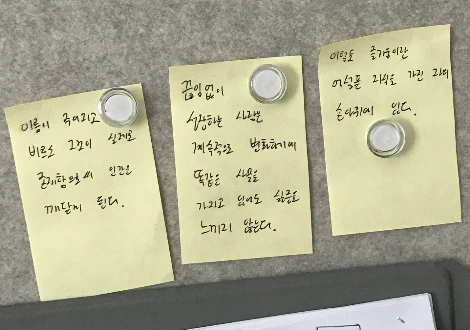 이름이 주어지고
비로소 그것이 실제로
존재함으로써 인간은
깨닫게 된다.
끊임없이
성장하는 사람은
계속적으로 변화하기에
똑같은 사물을
가지고 있어도 싫증을
느끼지 않는다.
즐거움이란
어설픈 지식을 가진 자의
손아귀에 있다.